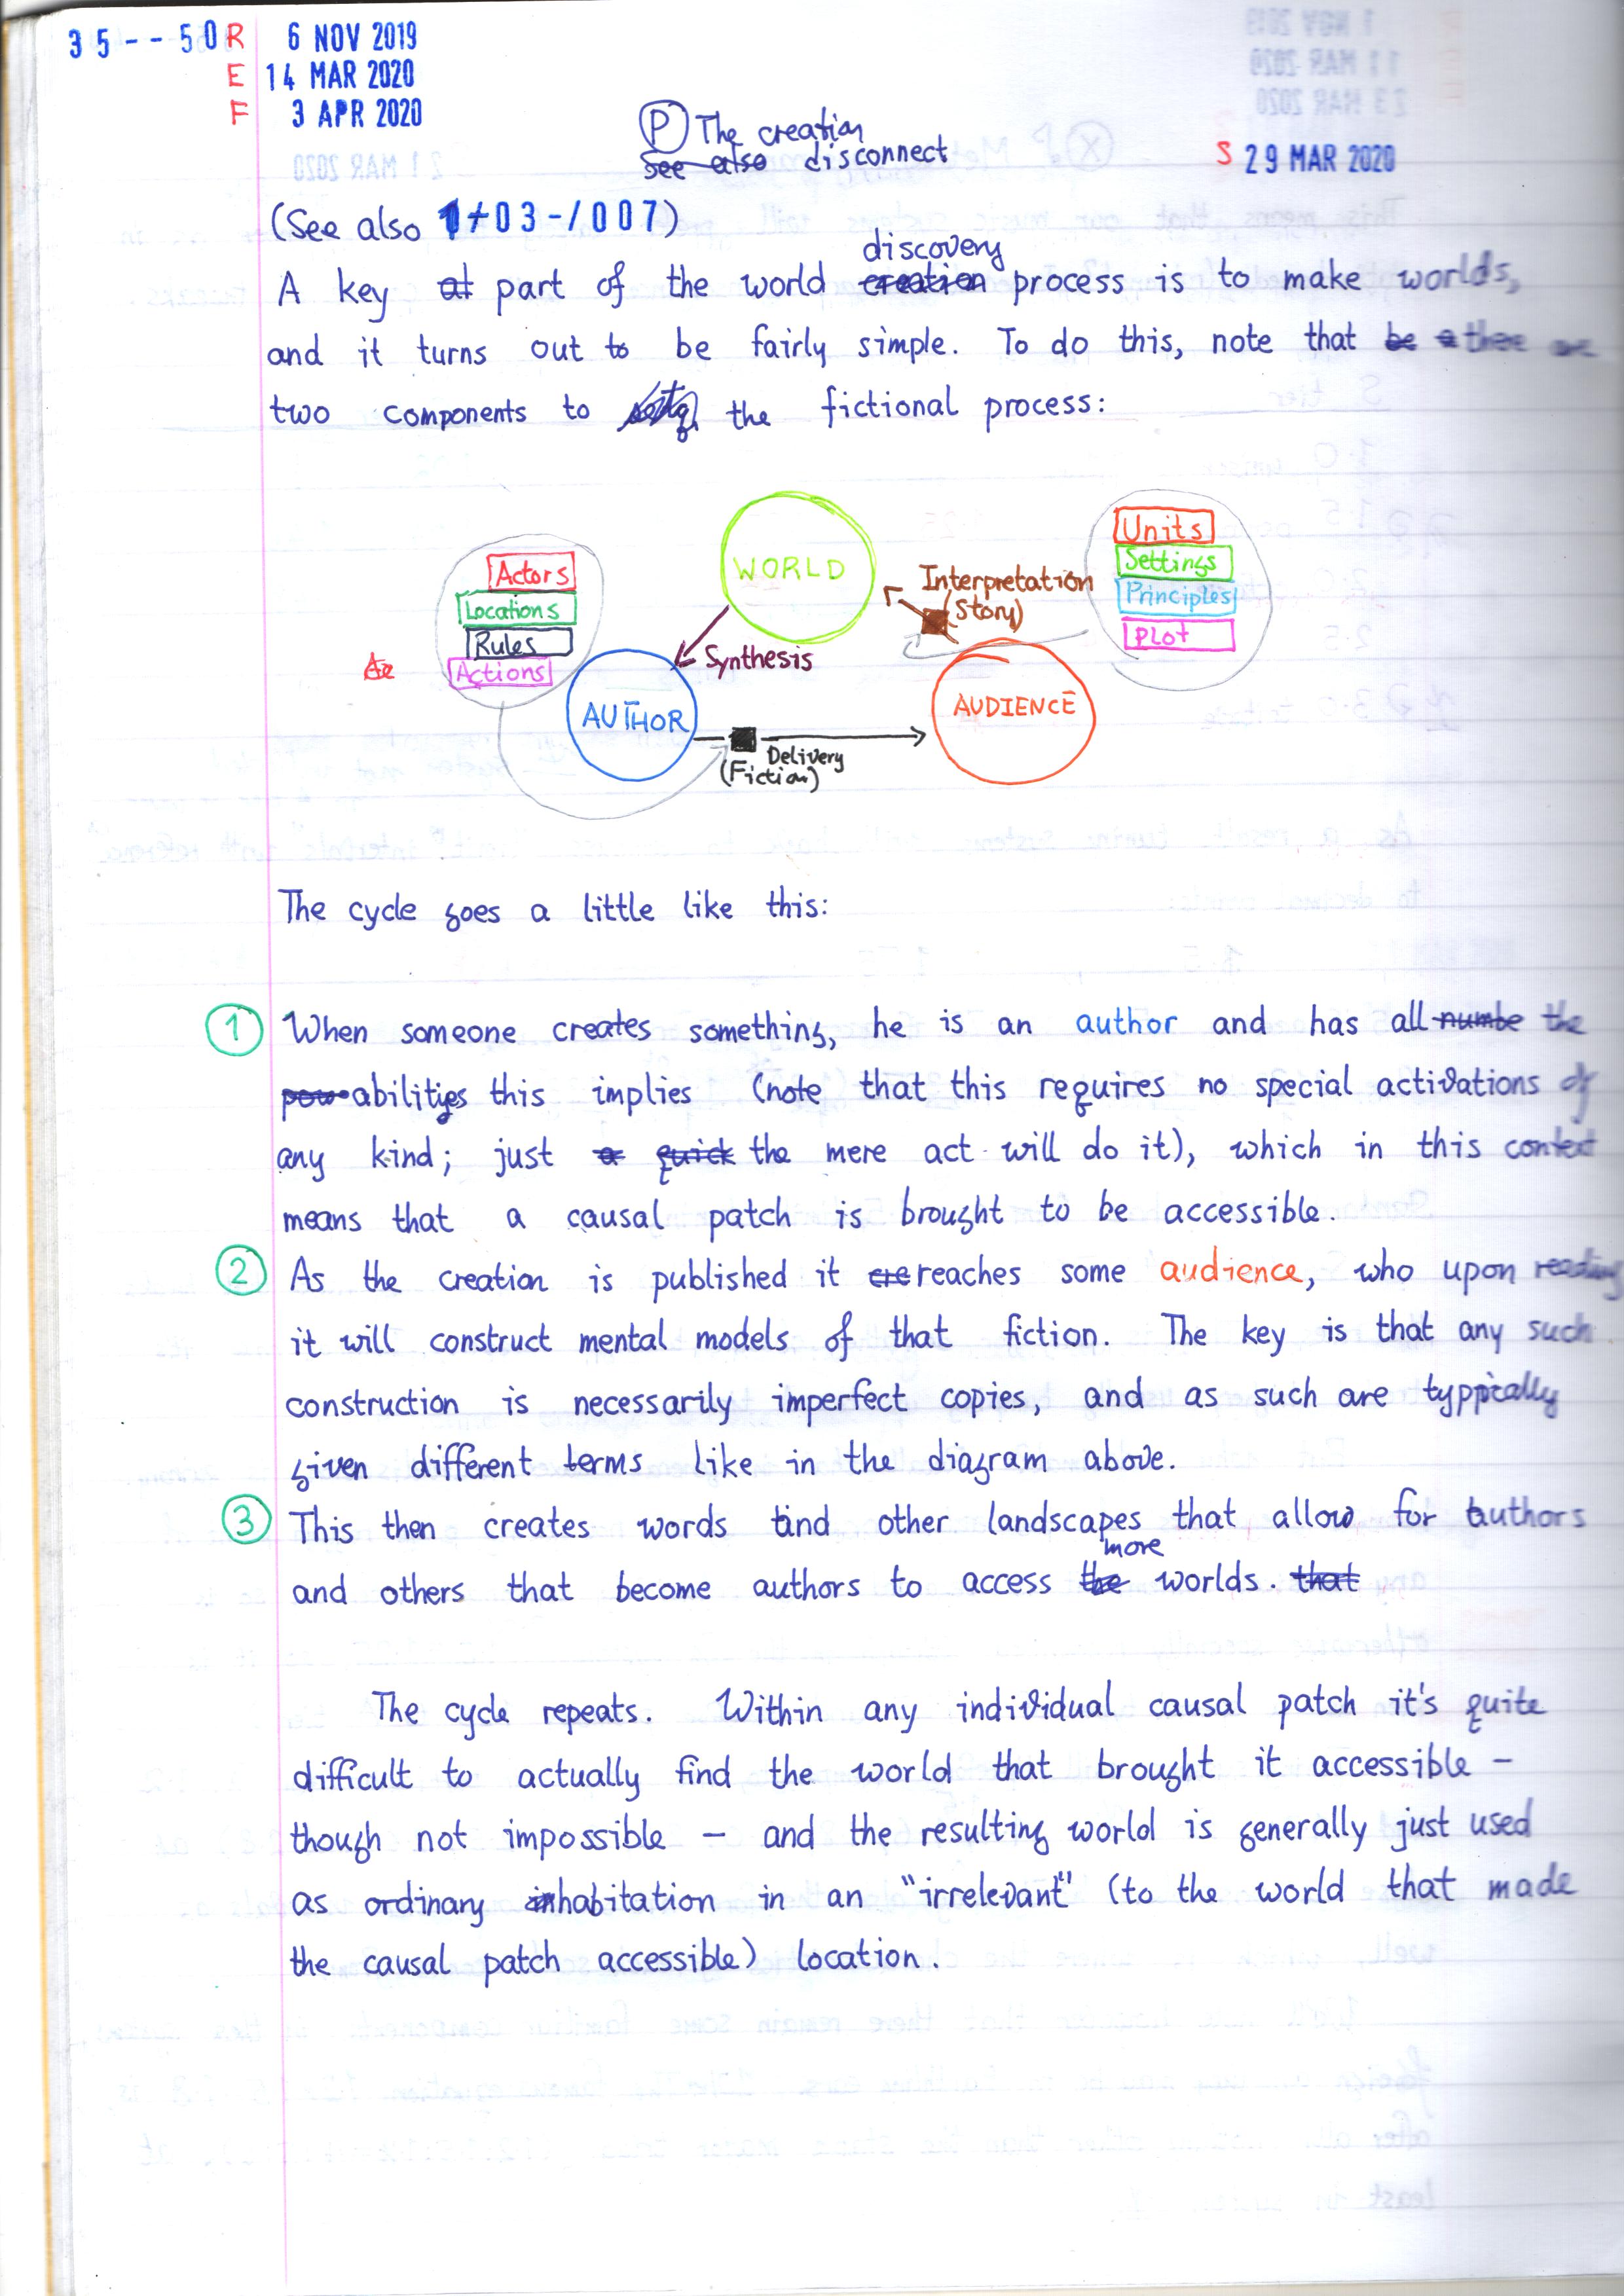 35--50 R 6 NOV 2019
E 14 MAR 2020
F 3 APR 2020
P The creation
See also disconnect
S 29 MAR 2020
(See also 1+03-/007)
discovery
A key at part of the world creation process is to make worlds,
and it turns out to be fairly simple. To do this, note that be a there are
two components to the fictional process:
WORLD
Units
Settings
Principles
Plot
Actors
Locations
Rules
Actions
Interpretation
(Story)
Synthesis
AUTHOR
AUDIENCE
Delivery
(Fiction)
The cycle goes a little like this:
1 When someone creates something, he is an author and has all numbe the
pow abilities this implies (note that this requires no special activations of
any kind; just a quick the mere act will do it), which in this context
means that a causal patch is brought to be accessible.
2 As the creation is published it cre reaches some audience, who upon reading
it will construct mental models of that fiction. The key is that any such
construction is necessarily imperfect copies, and as such are typpically
given different terms like in the diagram above.
3 This then creates words and other landscapes that allow for authors
more
and others that become authors to access the worlds. that
The cycle repeats. Within any individual causal patch it's quite
difficult to actually find the world that brought it accessible –
though not impossible – and the resulting world is generally just used
as ordinary inhabitation in an "irrelevant" (to the world that made
the causal patch accessible) location.